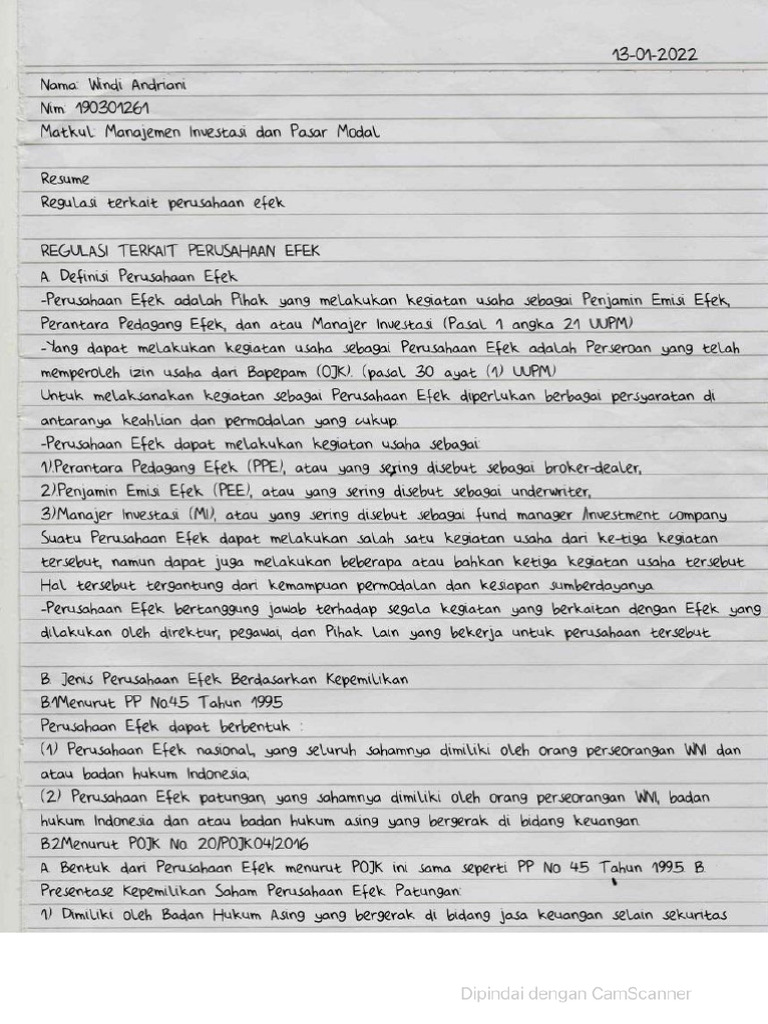 13-01-2022
Nama: Windi Andriani
Nim: 190301261
Matkul: Manajemen Investasi dan Pasar Modal
Resume
Regulasi terkait perusahaan efek
REGULASI TERKAIT PERUSAHAAN EFEK
A. Definisi Perusahaan Efek
-Perusahaan Efek adalah Pihak yang melakukan kegiatan usaha sebagai Penjamin Emisi Efek,
Perantara Pedagang Efek, dan atau Manajer Investasi (Pasal 1 angka 21 UUPM)
-Yang dapat melakukan kegiatan usaha sebagai Perusahaan Efek adalah Perseroan yang telah
memperoleh izin usaha dari Bapepam (OJK). (pasal 30 ayat (1) UUPM)
Untuk melaksanakan kegiatan sebagai Perusahaan Efek diperlukan berbagai persyaratan di
antaranya keahlian dan permodalan yang cukup.
-Perusahaan Efek dapat melakukan kegiatan usaha sebagai:
1).Perantara Pedagang Efek (PPE), atau yang sering disebut sebagai broker-dealer,
2)Penjamin Emisi Efek (PEE), atau yang sering disebut sebagai underwriter,
3)Manajer Investasi (MI), atau yang sering disebut sebagai fund manager /investment company
Suatu Perusahaan Efek dapat melakukan salah satu kegiatan usaha dari ke-tiga kegiatan
tersebut, namun dapat juga melakukan beberapa atau bahkan ketiga kegiatan usaha tersebut
Hal tersebut tergantung dari kemampuan permodalan dan kesiapan sumberdayanya
-Perusahaan Efek bertanggung jawab terhadap segala kegiatan yang berkaitan dengan Efek yang
dilakukan oleh direktur, pegawai, dan Pihak lain yang bekerja untuk perusahaan tersebut
B. Jenis Perusahaan Efek Berdasarkan Kepemilikan
B.1Menurut PP No.45 Tahun 1995
Perusahaan Efek dapat berbentuk :
(1) Perusahaan Efek nasional, yang seluruh sahamnya dimiliki oleh orang perseorangan WNI dan
atau badan hukum Indonesia,
(2) Perusahaan Efek patungan, yang sahamnya dimiliki oleh orang perseorangan WNI, badan
hukum Indonesia dan atau badan hukum asing yang bergerak di bidang keuangan.
B.2Menurut POJK No. 20/POJK.04/2016
A. Bentuk dari Perusahaan Efek menurut POJK ini sama seperti PP NO 45 Tahun 1995. B.
Presentase Kepemilikan Saham Perusahaan Efek Patungan:
1) Dimiliki oleh Badan Hukum Asing yang bergerak di bidang jasa keuangan selain sekuritas
Dipindai dengan CamScanner